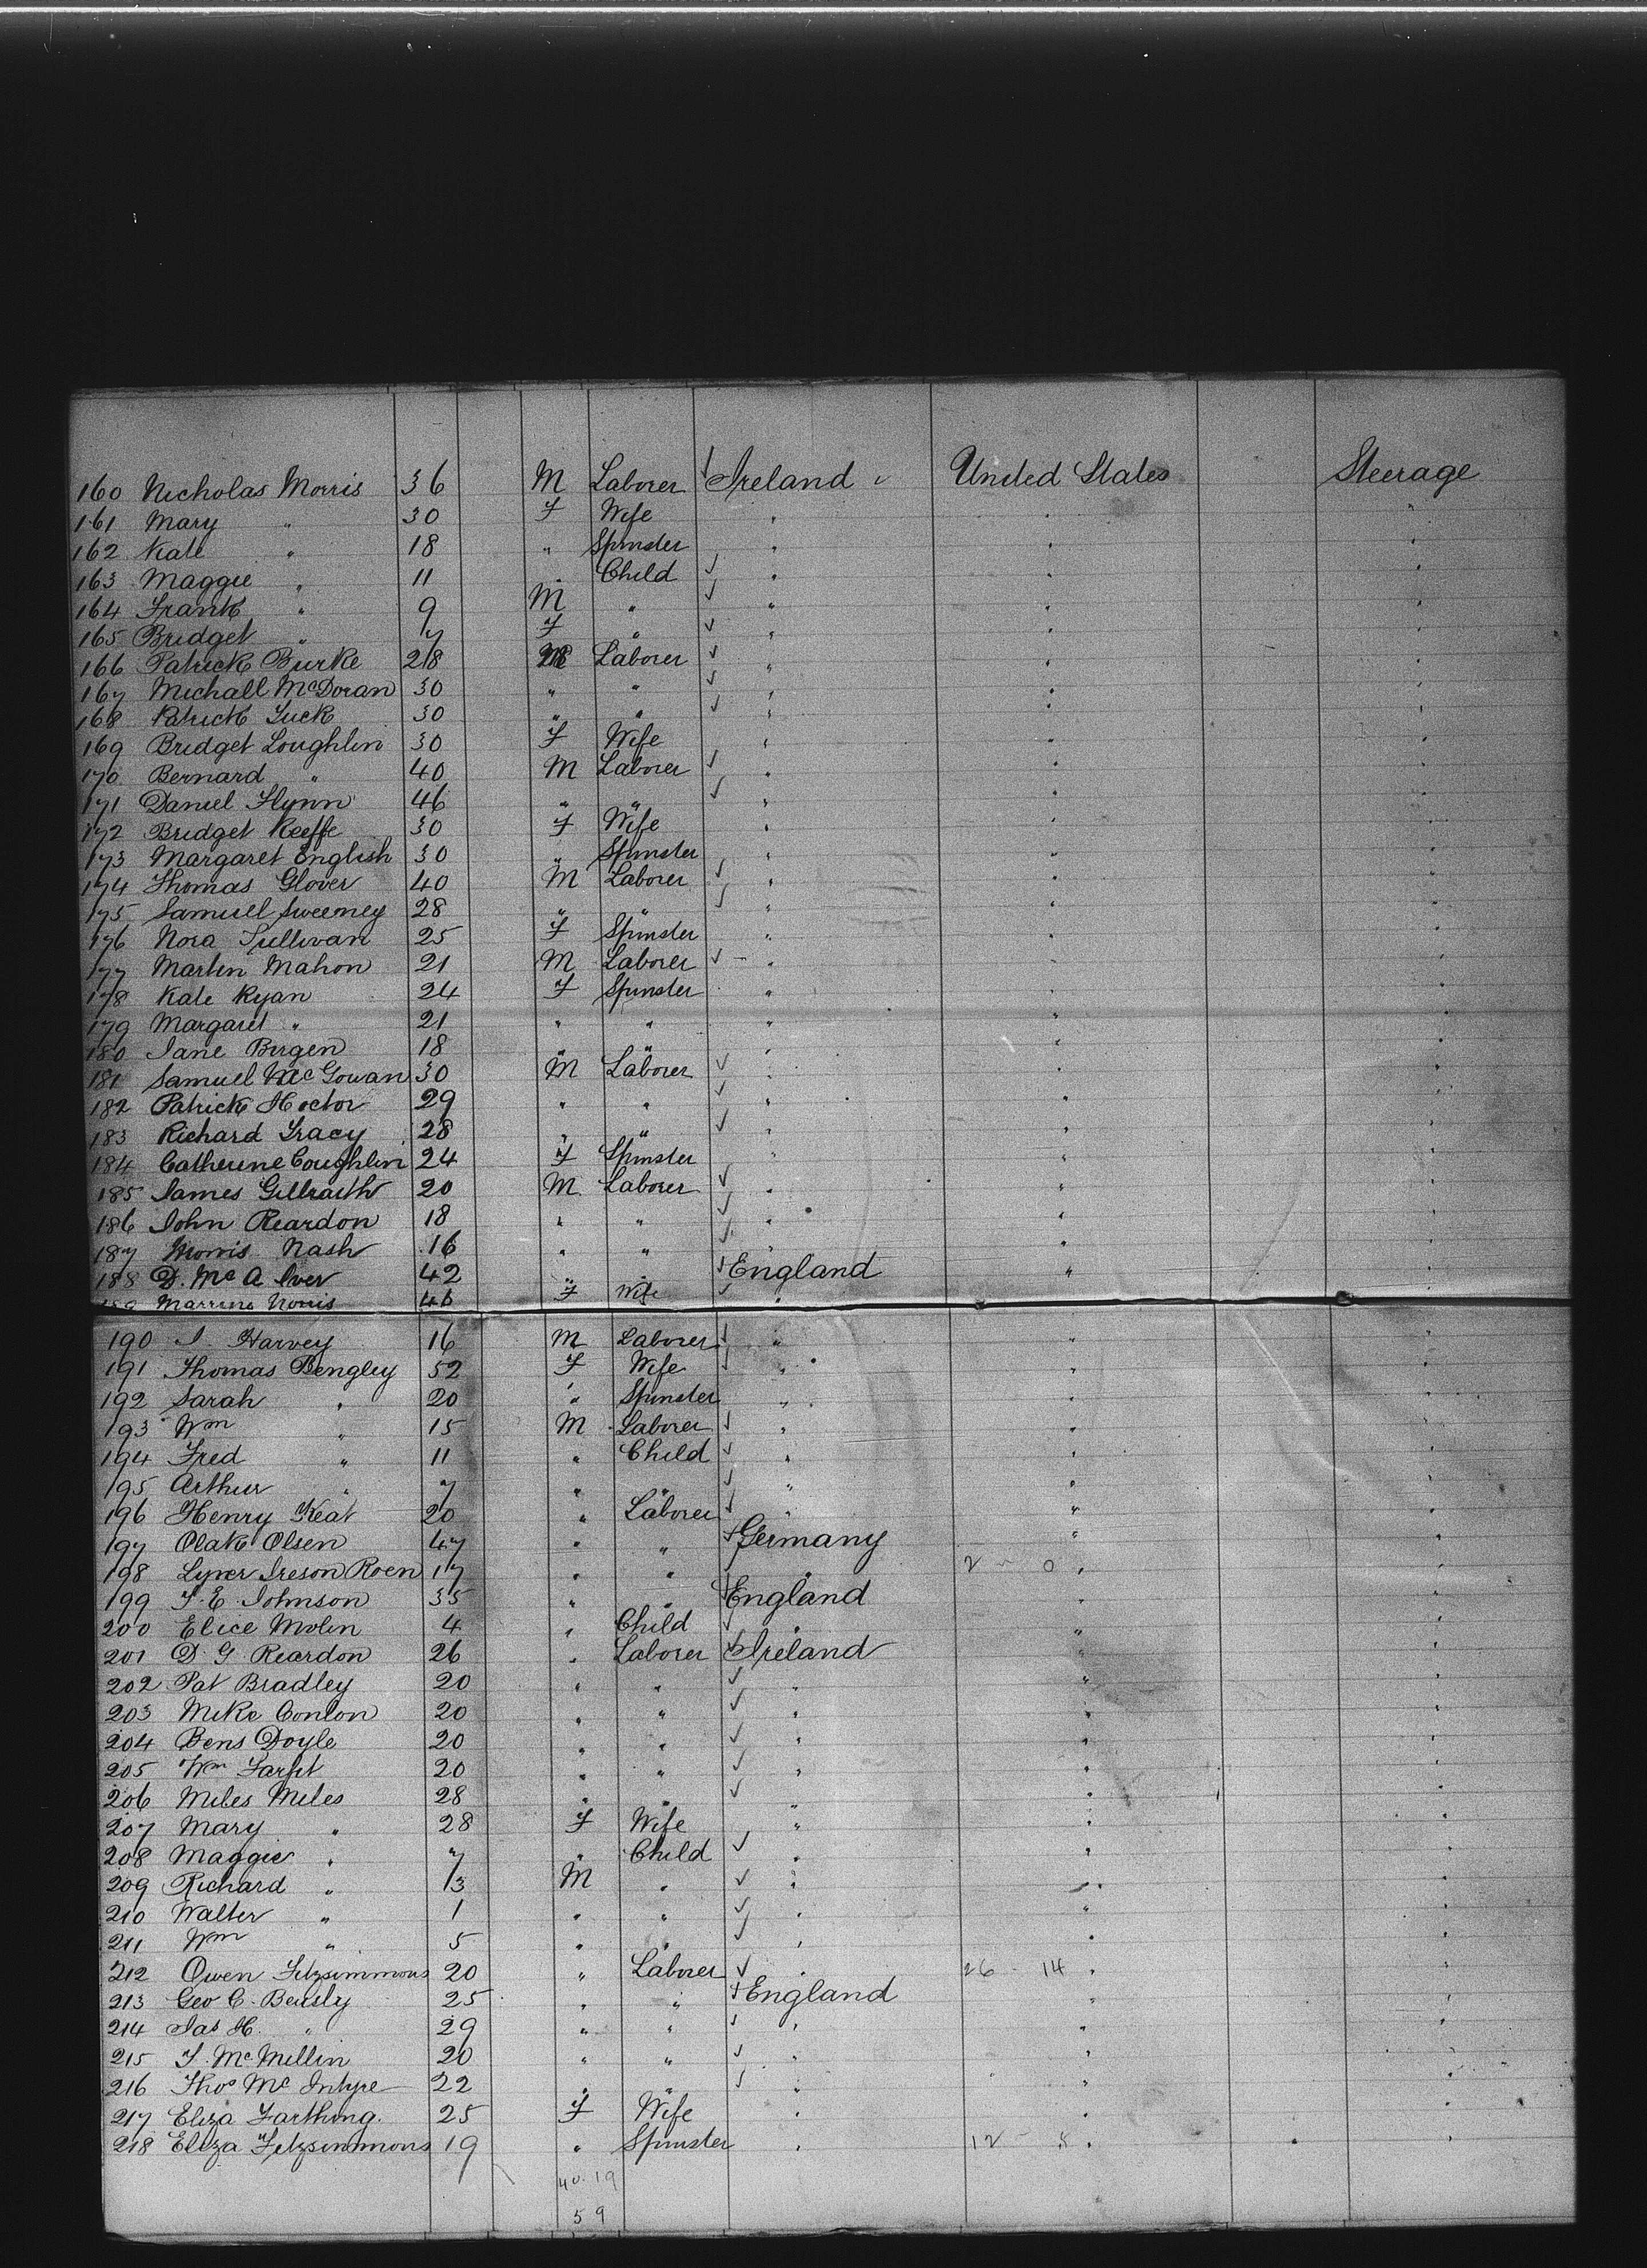 160 Nicholas Morris 36 M Laborer Ireland United States Steerage
161 Mary " 30 F Wife " " "
162 Kate " 18 " Spinster " " "
163 Maggie " 11 " Child " " "
164 Frank " 9 M " " " "
165 Bridget " 7 F " " " "
166 Patrick Burke 28 M Laborer " " "
167 Michall McDoran 30 " " " " "
168 Patrick Tuck 30 " " " " "
169 Bridget Loughlin 30 F Wife " " "
170 Bernard " 40 M Laborer " " "
171 Daniel Flynn 46 " " " " "
172 Bridget Keeffe 30 F Wife " " "
173 Margaret English 30 " Spinster " " "
174 Thomas Glover 40 M Laborer " " "
175 Samuel Sweeney 28 " " " " "
176 Nora Sullivan 25 F Spinster " " "
177 Martin Mahon 21 M Laborer " " "
178 Kate Ryan 24 F Spinster " " "
179 Margaret " 21 " " " " "
180 Jane Bergen 18 " " " " "
181 Samuel McGowan 30 M Laborer " " "
182 Patrick Hoctor 29 " " " " "
183 Richard Tracy 28 " " " " "
184 Catherine Coughlin 24 F Spinster " " "
185 James Gillraith 20 M Laborer " " "
186 John Reardon 18 " " " " "
187 Morris Nash 16 " " " " "
188 D. McA Iver 42 " " England " "
189 Norris 46 F Wife " " "
190 J. Harvey 16 M Laborer " " "
191 Thomas Bengley 52 F Wife " " "
192 Sarah " 20 " Spinster " " "
193 Wm " 15 M Laborer " " "
194 Fred " 11 " Child " " "
195 Arthur " 7 " " " " "
196 Henry Keat 20 " Laborer " " "
197 Olak Olsen 47 " " Germany " "
198 Lyver Ireson Roen 17 " " " 2 - 0 " "
199 T. E. Johnson 35 " " England " "
200 Elice Molin 4 " Child " " "
201 D. G. Reardon 26 " Laborer Ireland " "
202 Pat Bradley 20 " " " " "
203 Mike Conlon 20 " " " " "
204 Bens Doyle 20 " " " " "
205 Wm 20 " " " " "
206 Miles Miles 28 " " " " "
207 Mary " 28 F Wife " " "
208 Maggie " 7 " Child " " "
209 Richard " 3 M " " " "
210 Walter " 1 " " " " "
211 Wm " 5 " " " " "
212 Owen Fitzsimmons 20 " Laborer " 26 - 14 " "
213 Geo C. Beusly 25 " " England " "
214 Jas H. " 29 " " " " "
215 T. McMillin 20 " " " " "
216 Thos McIntyre 22 " " " " "
217 Eliza Farthing. 25 F Wife " " "
218 Eliza Fitzsimmons 19 " Spinster " 12 - 8 " "
40. 19
59